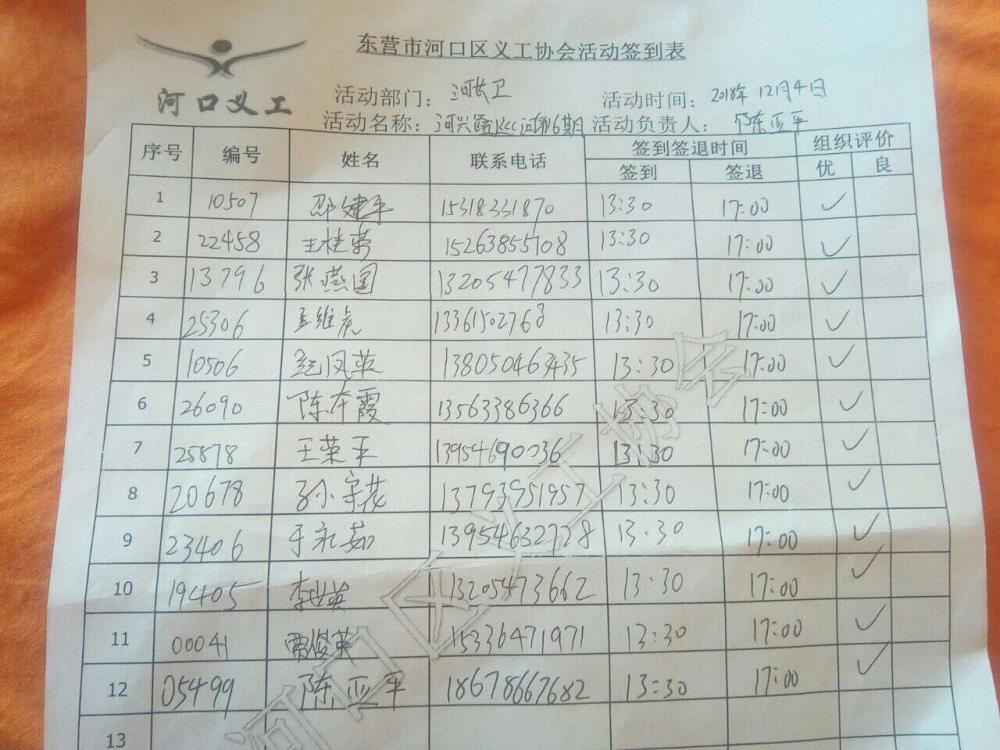 东营市河口区义工协会活动签到表
河口义工
活动部门： 河长卫 活动时间： 2018年12月4日
活动名称： 河兴路 第6期 活动负责人： 陈亚平
序号 编号 姓名 联系电话 签到签退时间 组织评价
签到 签退 优 良
1 10507 邵建平 15318331870 13:30 17:00 ✓
2 22458 王桂菊 15263855108 13:30 17:00 ✓
3 13796 张燕国 13205477833 13:30 17:00 ✓
4 25306 孟维虎 13361502768 13:30 17:00 ✓
5 10506 赵凤英 13:30 17:00 ✓
6 26090 陈本霞 13563386366 13:30 17:00 ✓
7 25878 王荣平 13954690036 13:30 17:00 ✓
8 20678 孙宝花 13793951957 13:30 17:00 ✓
9 23406 于永茹 13954632728 13:30 17:00 ✓
10 19405 李世英 13205473662 13:30 17:00 ✓
11 00041 贾俊英 15336471971 13:30 17:00 ✓
12 05499 陈亚平 18678667682 13:30 17:00 ✓
13
河口区义工协会